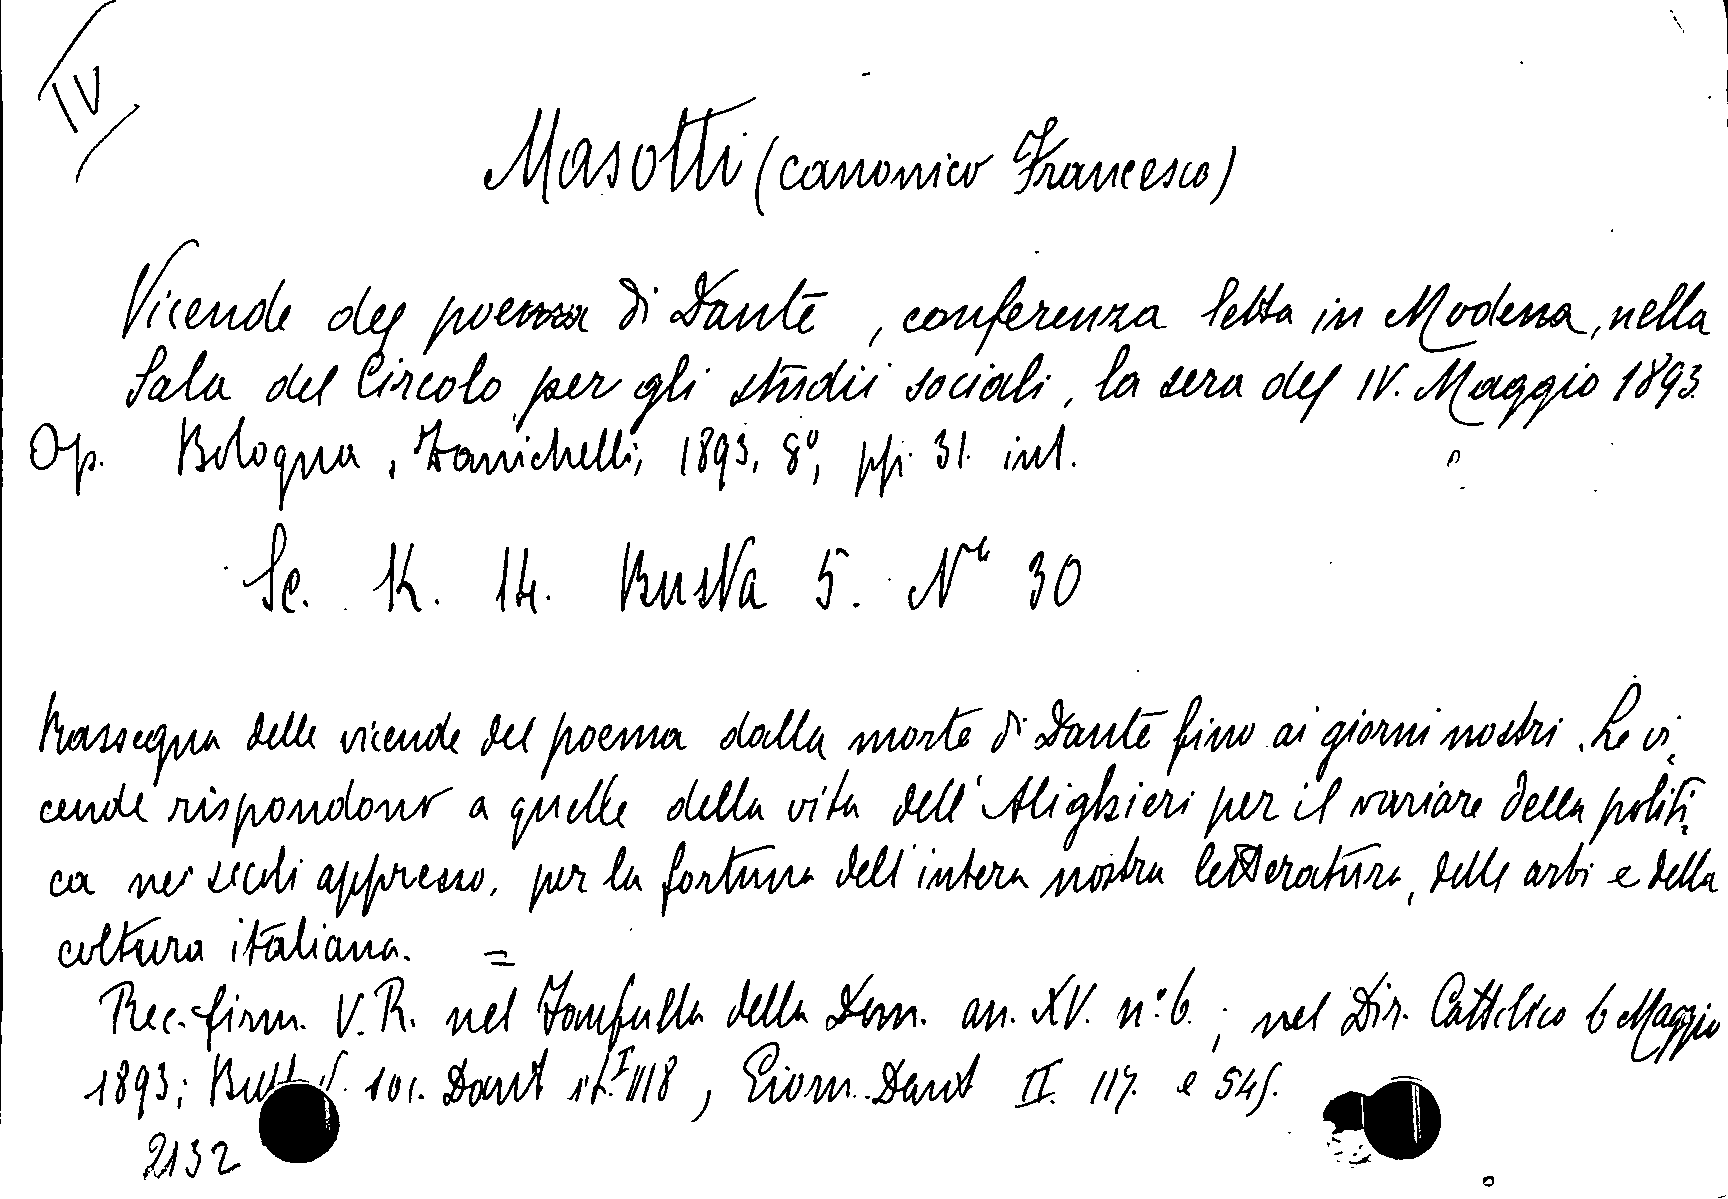 IV
Masotti (canonico Francesco)
Vicende del poema di Dante, conferenza letta in Modena, nella
Sala del Circolo per gli studii sociali, la sera del IV. Maggio 1893.
Op. Bologna, Zanichelli, 1893, 8º, pp. 31. int.
Sc. K. 14. Busta 5. Nº 30
Rassegna delle vicende del poema dalla morte di Dante fino ai giorni nostri. Le vi-
cende rispondono a quelle della vita dell'Alighieri per il variare della politi-
ca nei secoli appresso, per la fortuna dell'intera nostra letteratura, delle arti e della
coltura italiana. =
Rec. firm. V. R. nel Fanfulla della Dom. an. XV. nº 6.; nel Dir. Cattolico 6 Maggio
1893; Bull. Soc. Dant. it. I 118, Giorn. Dant II. 117. e 545.
2132